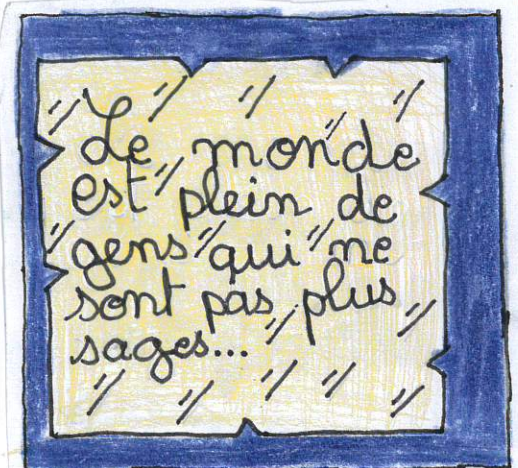 Le monde
est plein de
gens qui ne
sont pas plus
sages...